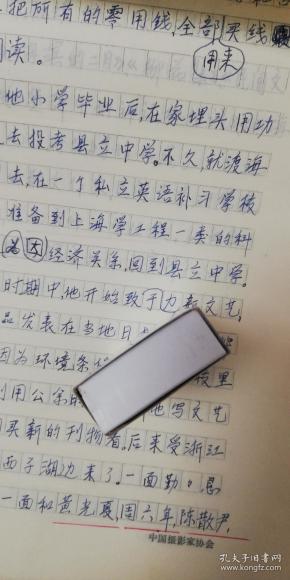 把所有的零用錢,全部买线
用来
阅读。
他小学毕业后,在家埋头用功
去投考县立中学。不久,就渡海
去,在一个私立英语补习学校
准备到上海学工程一类的科
因经济关系,回到县立中学。
时期中,他开始致于文艺,
品发表在当地日
因为环境条 校里
利用公余的 他写文艺
买新的刊物看。后来受浙江
西子湖边来了。一面勤
一面和黄光夏,周六年,陈散尹,
中国摄影家协会
孔夫子旧书网